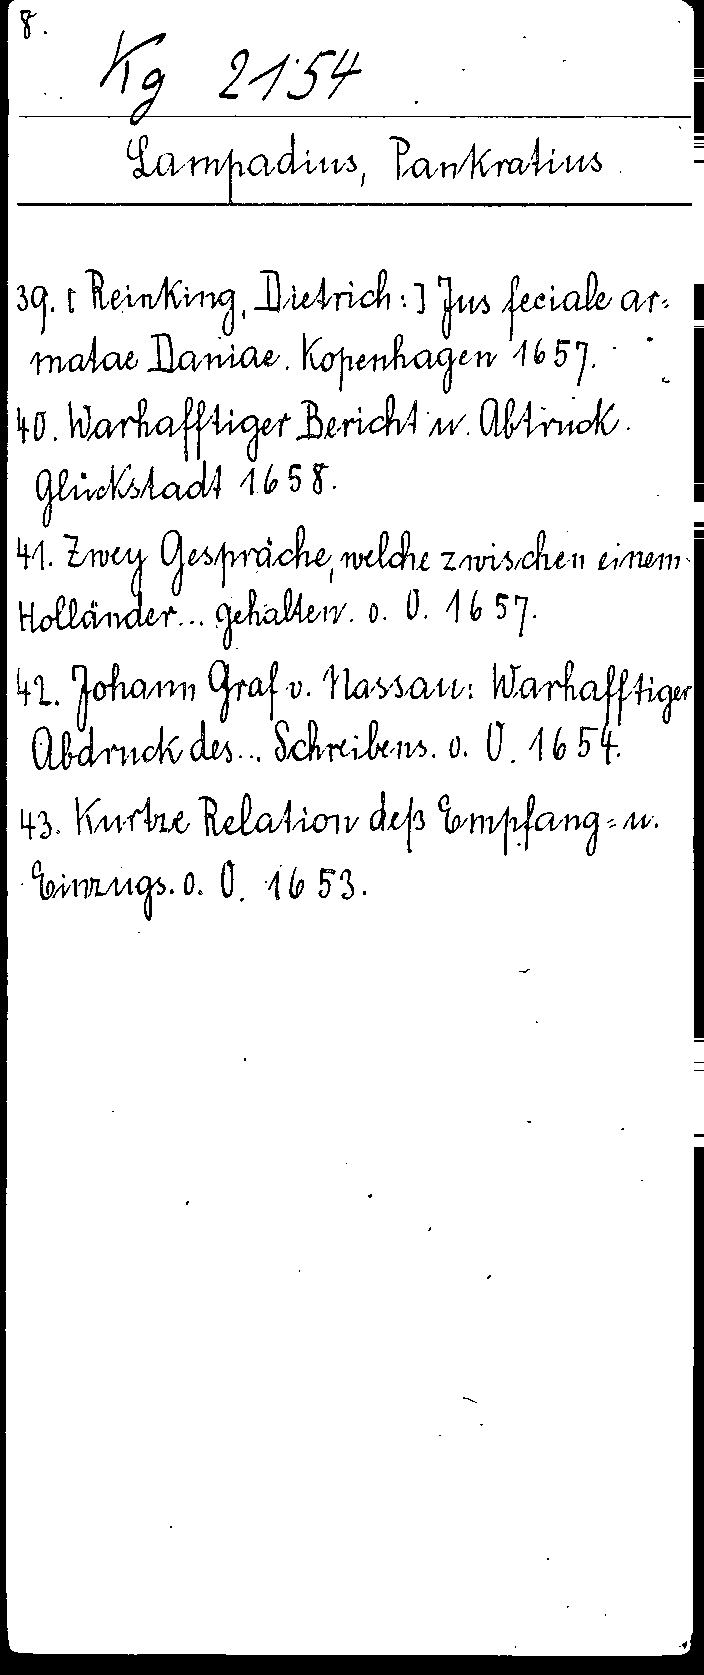 8.
Kg 2154
Lampadius, Pankratius
39. [Reinking, Dietrich:] Jus feciale ar=
matae Daniae. Kopenhagen 1657.
40. Warhafftiger Bericht u. Abtruck.
Glückstadt 1658.
41. Zwey Gespräche, welche zwischen einem
Holländer... gehalten. o. O. 1657.
42. Johann Graf v. Nassau: Warhafftiger
Abdruck des... Schreibens. o. O. 1654.
43. Kurtze Relation deß Empfang= u.
Einzugs. o. O. 1653.